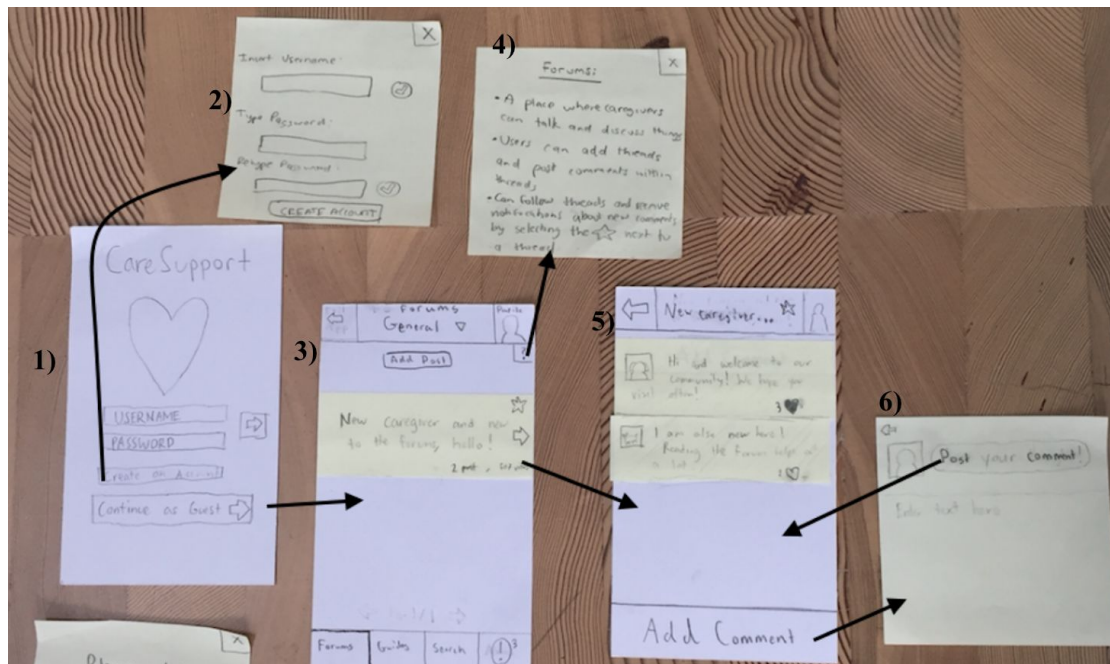 1)
CareSupport
USERNAME
PASSWORD
Create an Account
Continue as Guest
2)
X
Insert Username:
Type Password:
Retype Password:
CREATE ACCOUNT
3)
Forums
General
Profile
Add Post
?
New caregiver and new
to the forums, hello!
2 post,
Forums
Guides
Search
! 3
4)
X
Forums:
• A place where caregivers
can talk and discuss things
• Users can add threads
and post comments within
threads
• Can follow threads and receive
notifications about new comments
by selecting the ☆ next to
a thread
5)
New caregiver...
Hi and welcome to our
community! We hope you
visit often!
3
I am also new here!
Reading the forum helps
a lot
Add Comment
6)
Post your comment!
Enter text here
X